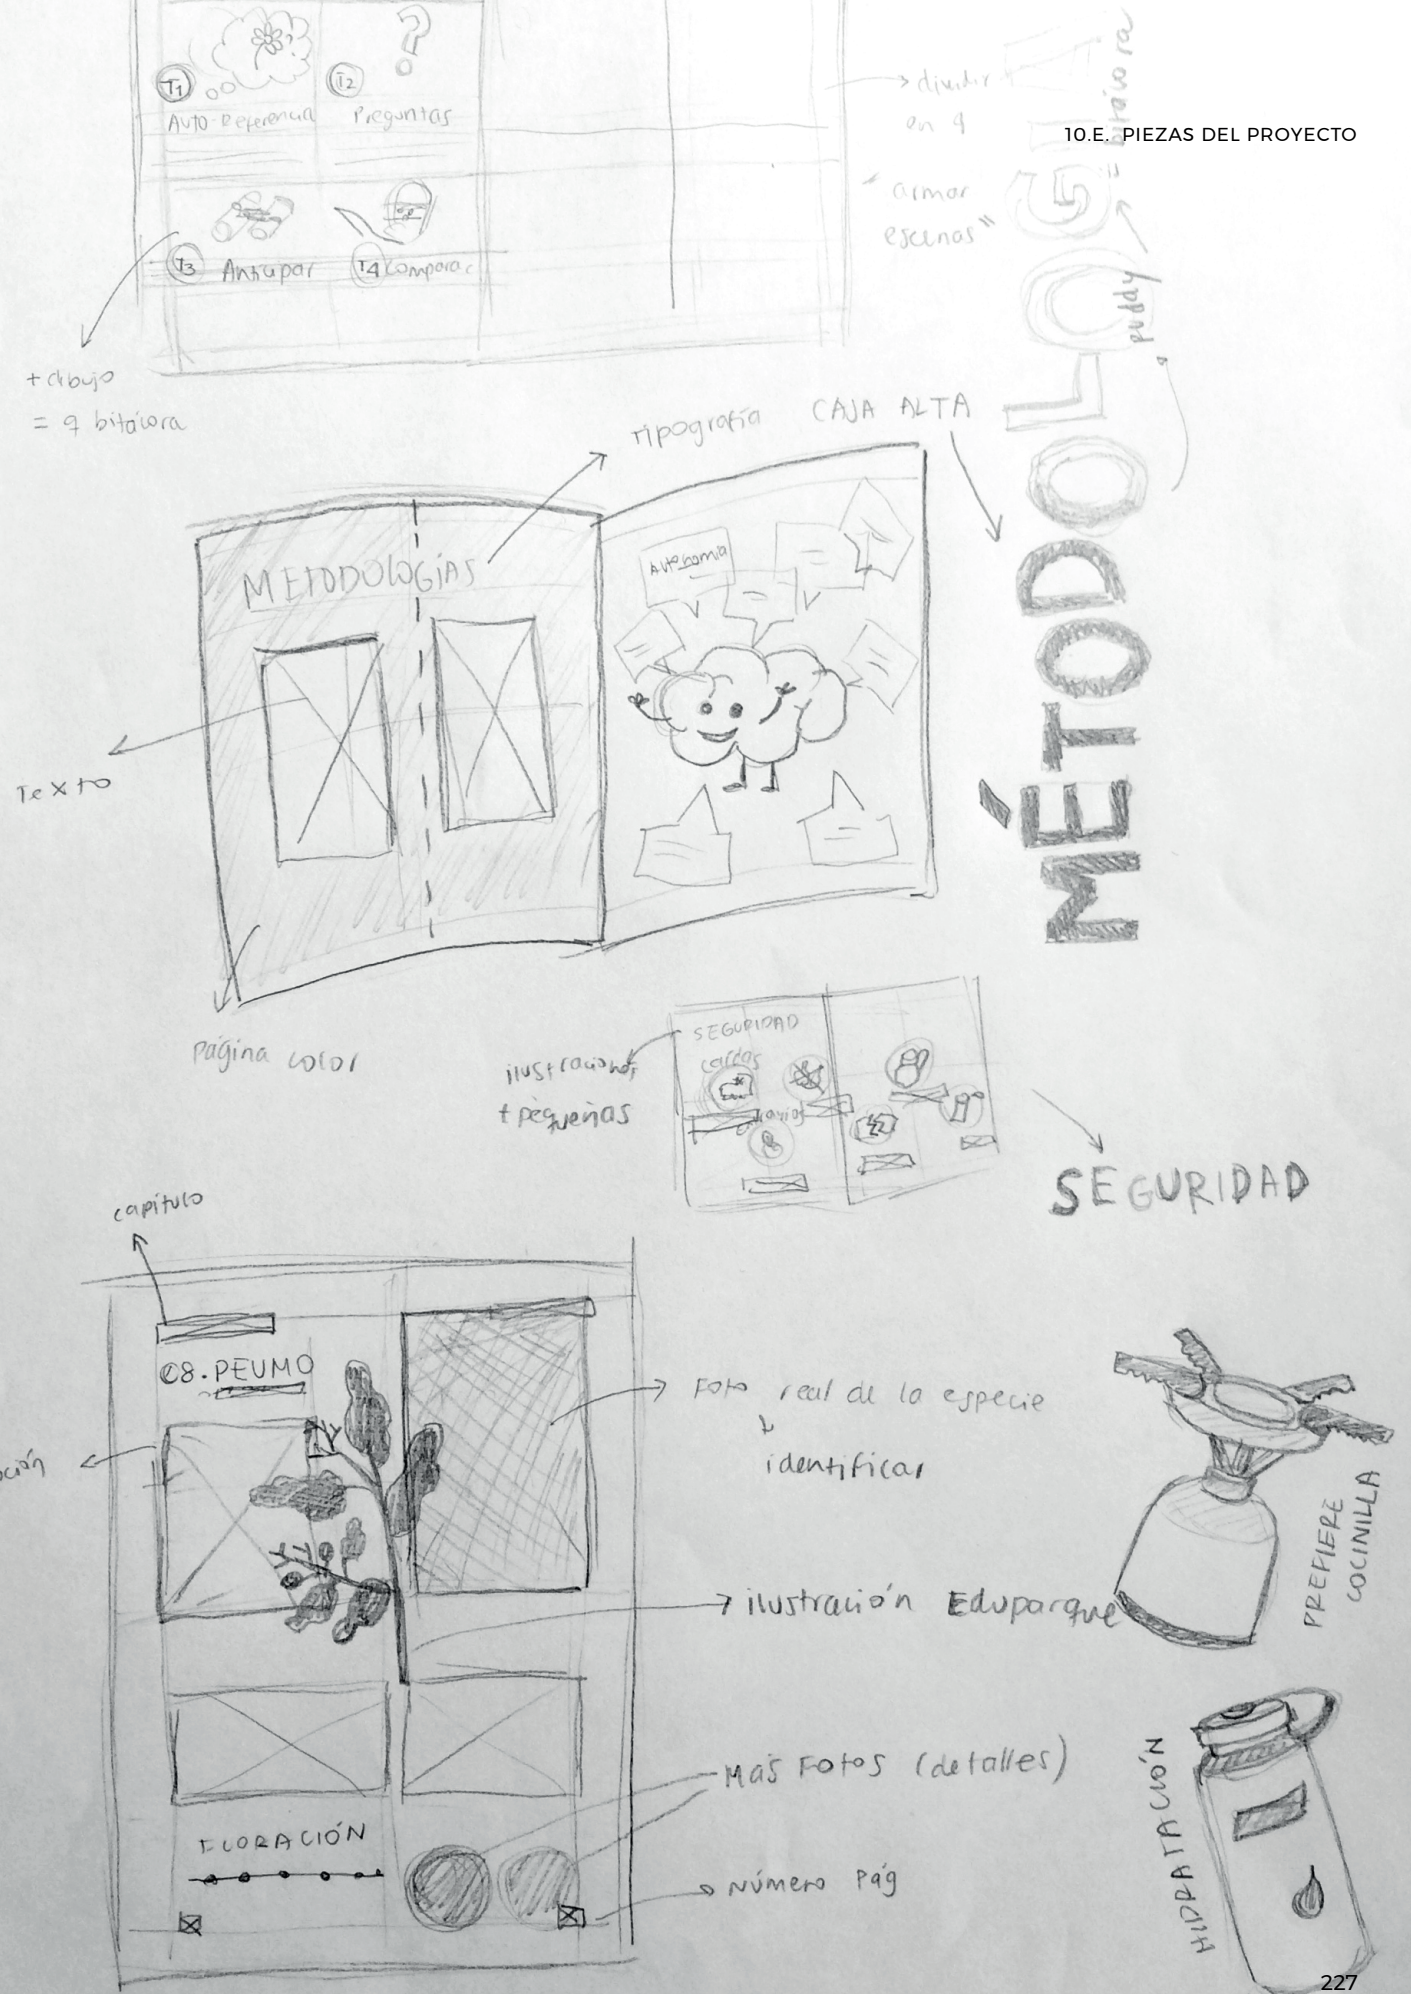 10.E. PIEZAS DEL PROYECTO
T1
Auto-Referencia
T2
Preguntas
T3
Anticipar
T4
Comparar
dividir
en 4
"armar
escenas"
= bitácora
+ dibujo
= q bitácora
Tipografía CAJA ALTA
METODOLOGÍAS
Autonomía
Texto
Página color
MÉTODOLOGÍ
ilustraciones
+ pequeñas
SEGURIDAD
SEGURIDAD
capítulo
08. PEUMO
Foto real de la especie
identificar
ilustración Eduparque
Más Fotos (detalles)
FLORACIÓN
Número Pág
PREFIERE
COCINILLA
HIDRATACIÓN
227